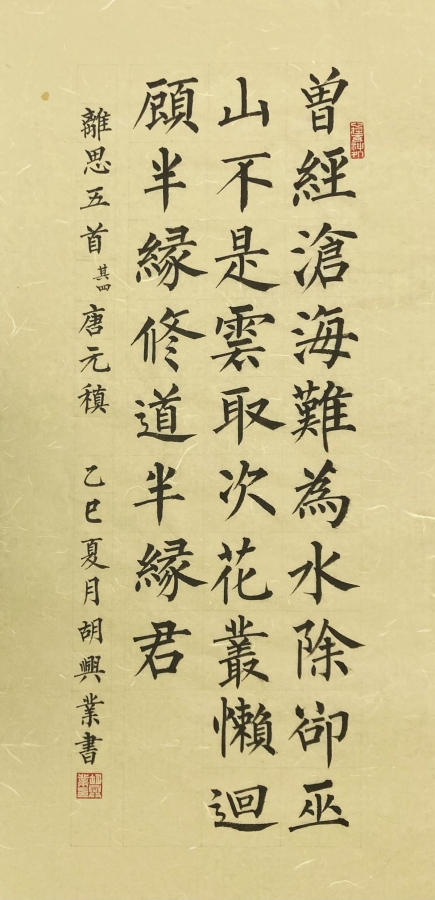 曾經滄海難為水除卻巫
山不是雲取次花叢懶迴
顧半緣修道半緣君
離思五首其四唐元稹 乙巳夏月胡興業書